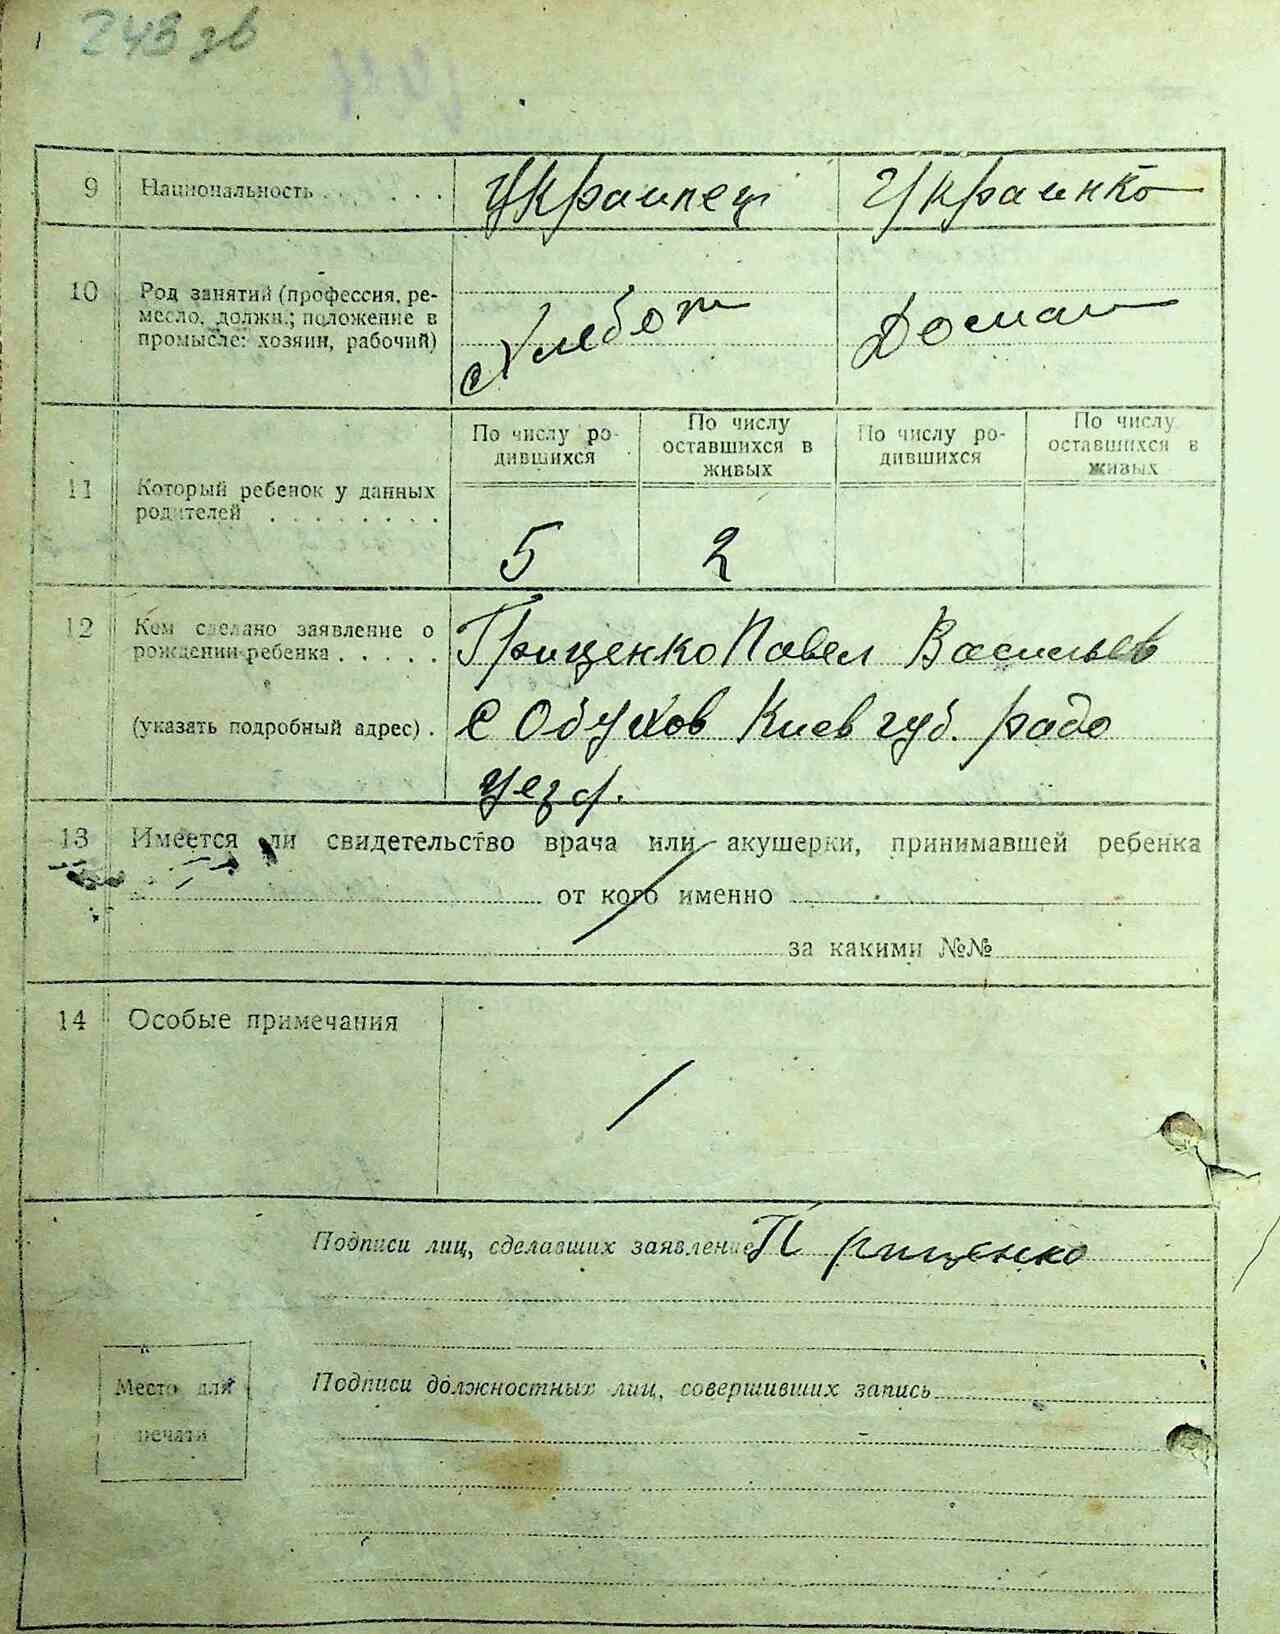 243 зв
9 Национальность . . . . . . Украинец Украинко
10 Род занятий (профессия, ре-
месло, должн.; положение в
промысле: хозяин, рабочий)
Хлебоп Домаш
11 Который ребенок у данных
родителей . . . . . . . .
По числу ро-
дившихся
По числу
оставшихся в
живых
По числу ро-
дившихся
По числу
оставшихся в
живых
5 2
12 Кем сделано заявление о
рождении ребенка . . . . .
(указать подробный адрес) .
Грищенко Павел Васильев
с Обухов Киев губ. радо
уезд.
13 Имеется ли свидетельство врача или акушерки, принимавшей ребенка
от кого именно
за какими №№
14 Особые примечания
Подписи лиц, сделавших заявление П Грищенко
Место для
печати
Подписи должностных лиц, совершивших запись